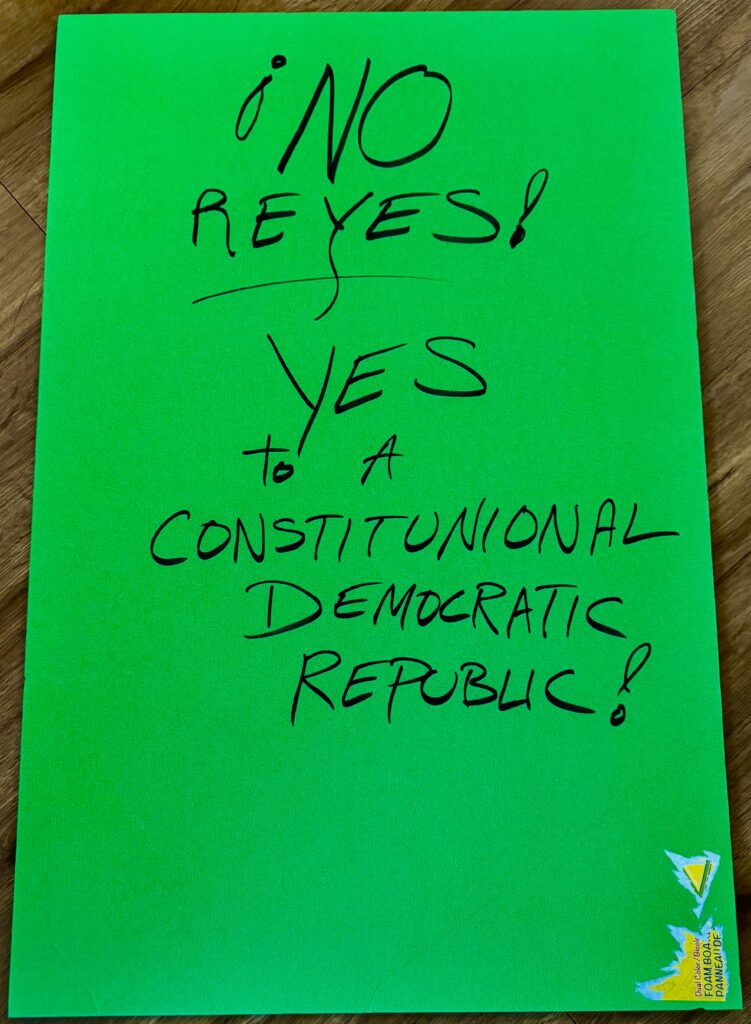 ¡NO
REYES!
YES
to A
CONSTITUNIONAL
DEMOCRATIC
REPUBLIC!
Dual Color/Black
FOAM BOA
PANNEAU DE